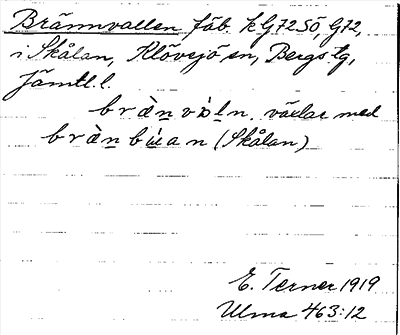 Brännvallen fäb. k G72SÖ, G72,
i Skålan, Klövsjö sn, Bergs tg,
Jämtl. l.
brä̀nvàln. växlar med
brä̀nbúan (Skålan)
E. Terner 1919
Ulma 463:12